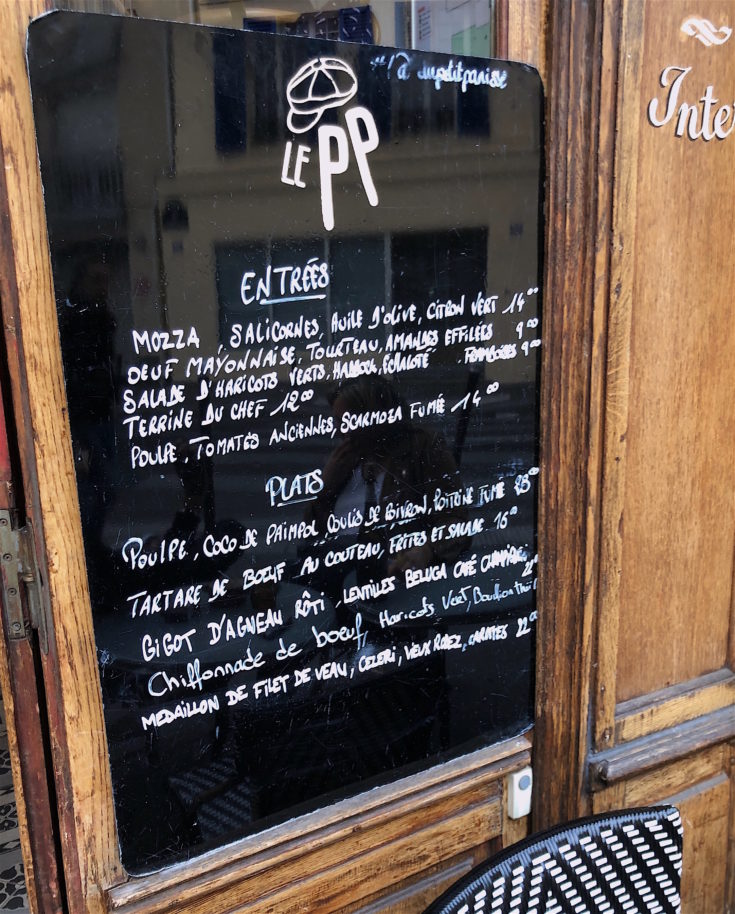 @ lupetitparisse
LE PP
Inte
ENTRÉES
MOZZA, SALICORNES, HUILE D'OLIVE, CITRON VERT 14°°
OEUF MAYONNAISE, TOURTEAU, AMANDES EFFILÉES 9°°
SALADE D'HARICOTS VERTS, HADDOCK, ÉCHALOTE, FRAMBOISES 9°°
TERRINE DU CHEF 12°°
POULPE, TOMATES ANCIENNES, SCARMOZA FUMÉE 14°°
PLATS
POULPE, COCO DE PAIMPOL, COULIS DE POIVRON, POITRINE FUMÉ 28°°
TARTARE DE BOEUF AU COUTEAU, FRITES ET SALADE 16°°
GIGOT D'AGNEAU RÔTI, LENTILLES BELUGA CAFÉ
Chiffonnade de boeuf, Haricots Vert, Bouillon thaï
MEDAILLON DE FILET DE VEAU, CELERI, VIEUX RODEZ, CAROTTES 22°°